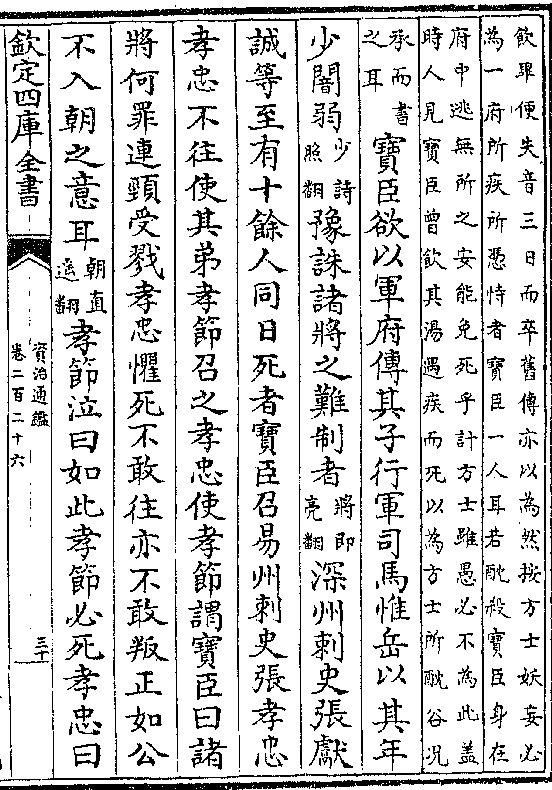 飲畢便失音三日而卒舊傳亦以為然按方士妖妄必
為一府所疾所憑恃者寶臣一人耳若酖殺寶臣身在
府中逃無所之安能免死乎計方士雖愚必不為此盖
時人見寶臣曾飲其湯遇疾而死以為方士所酖谷况
承而書之耳寶臣欲以軍府傳其子行軍司馬惟岳以其年
少闇弱少詩照翻豫誅諸將之難制者將即亮翻深州刺史張獻
誠等至有十餘人同日死者寶臣召易州刺史張孝忠
孝忠不往使其弟孝節召之孝忠使孝節謂寶臣曰諸
將何罪連頸受戮孝忠懼死不敢往亦不敢叛正如公
不入朝之意耳朝直遥翻孝節泣曰如此孝節必死孝忠曰
欽定四庫全書
資治通鑑
卷二百二十六
三十